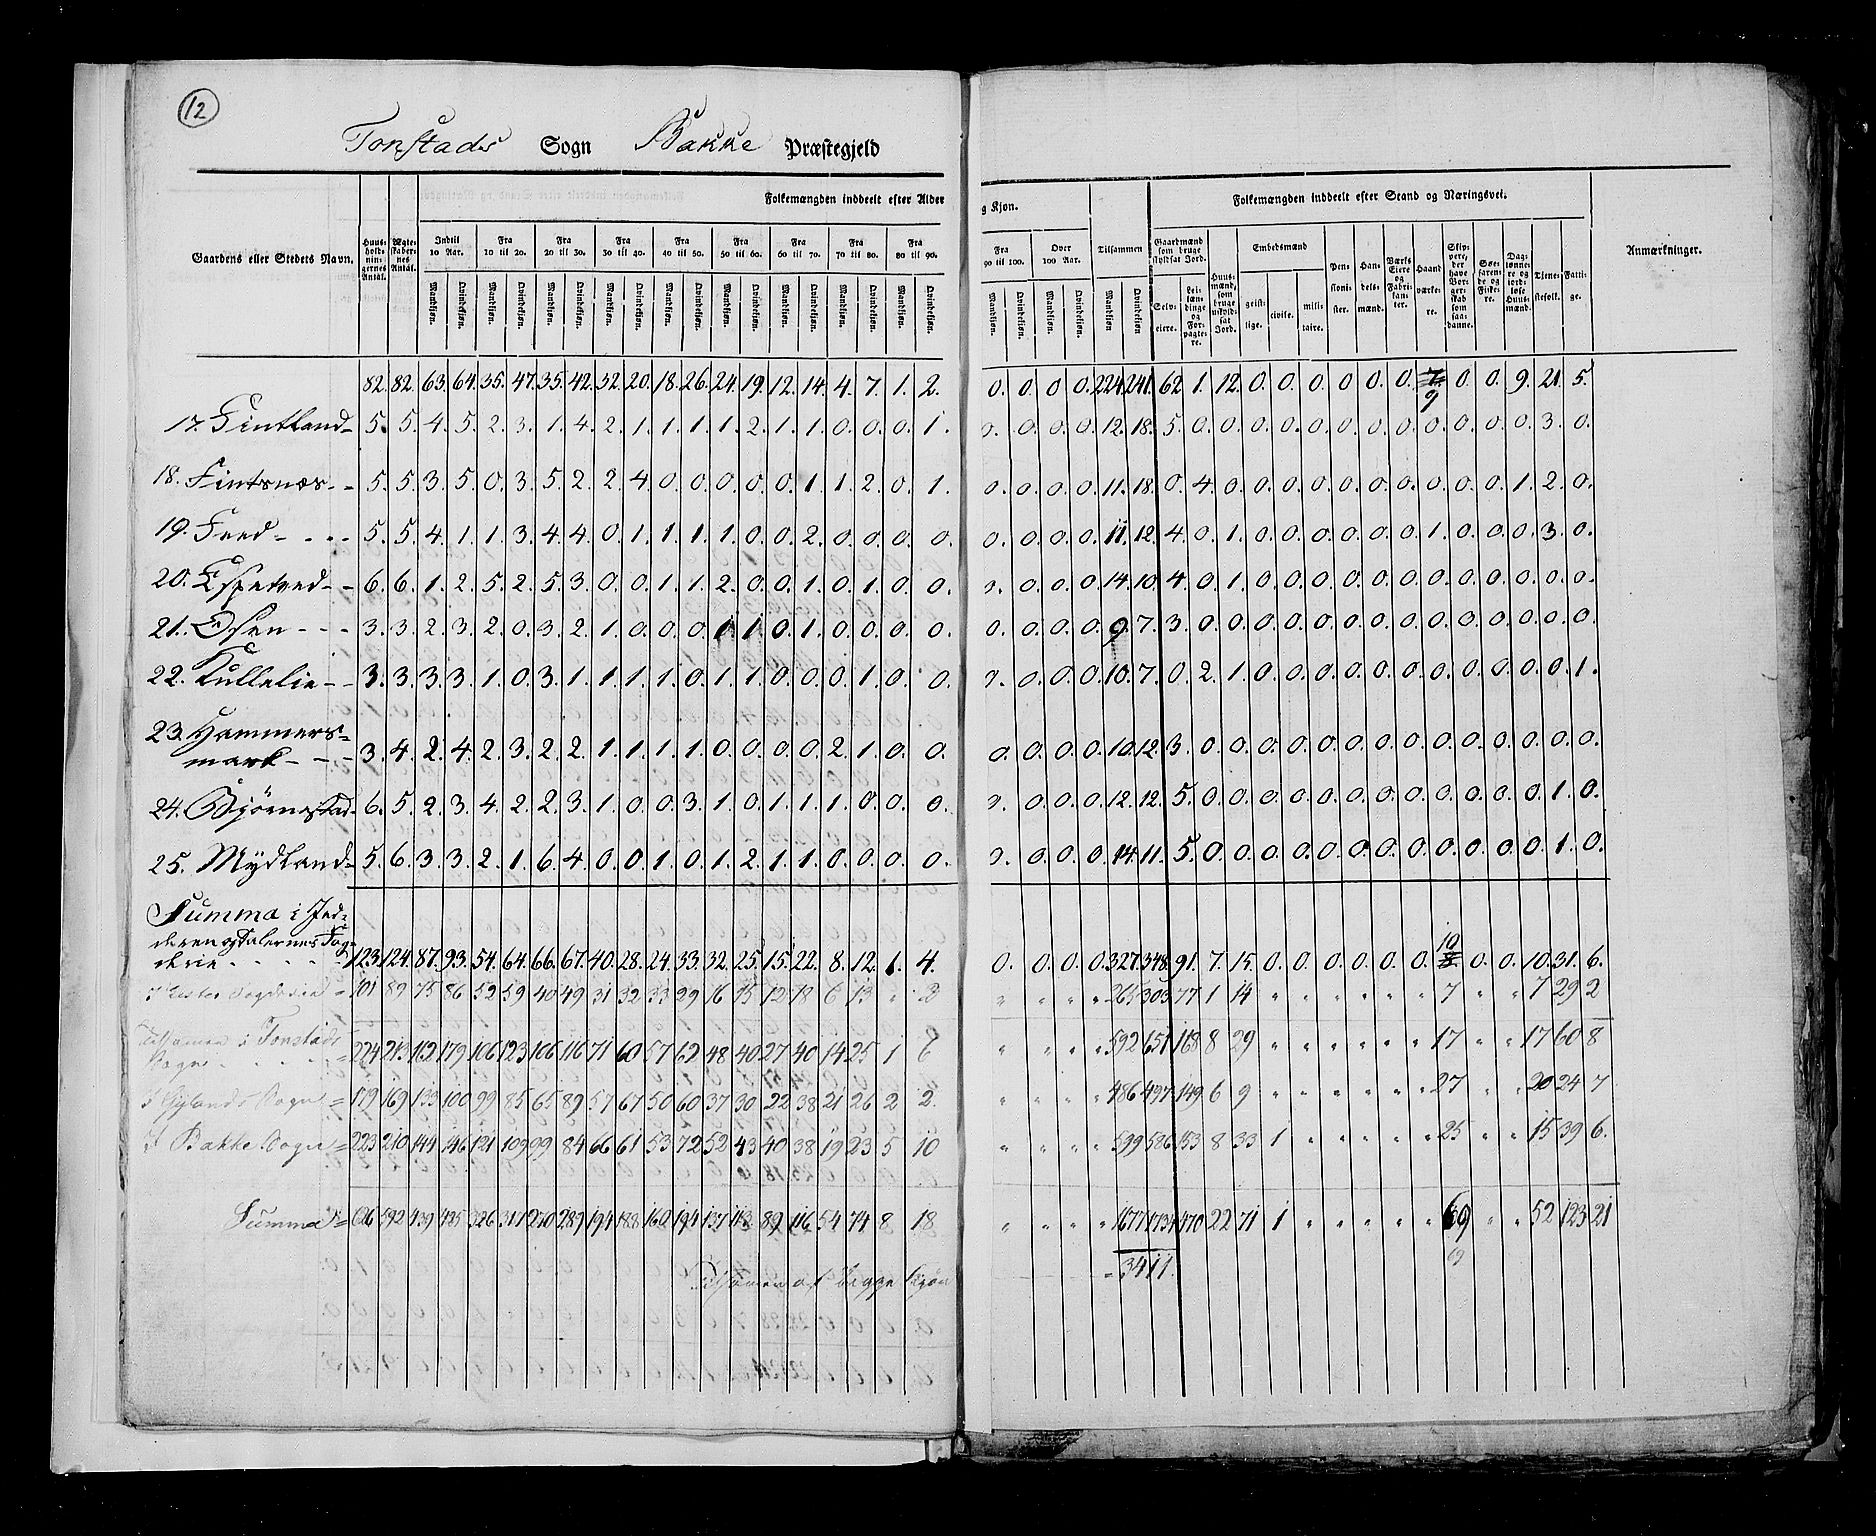 12
Tonstads Sogn Bakke Præstegjeld
Gaardens eller Stedets Navn. Huus-holdnin-gernes Antal. Ægte-skaber-nes Antal. Folkemængden inddeelt efter Alder
g Kjøn. Tilsammen Folkemængden inddeelt efter Stand og Næringsvei. Anmærkninger.
Indtil 10 Aar. Fra 10 til 20. Fra 20 til 30. Fra 30 til 40. Fra 40 til 50. Fra 50 til 60. Fra 60 til 70. Fra 70 til 80. Fra 80 til 90. Fra 90 til 100. Over 100 Aar.
Gaardmænd som bruge skyldsat Jord. Embedsmænd
Mandkjøn. Qvindekjøn. Mandkjøn. Qvindekjøn. Mandkjøn. Qvindekjøn. Mandkjøn. Qvindekjøn. Mandkjøn. Qvindekjøn. Mandkjøn. Qvindekjøn. Mandkjøn. Qvindekjøn. Mandkjøn. Qvindekjøn. Mandkjøn. Qvindekjøn. Mandkjøn. Qvindekjøn. Mandkjøn. Qvindekjøn. Mandkjøn. Qvindekjøn.
Selv-eiere. Lei-læn-dinge og For-pagte-re. Huus-mænd, som bruge uskyld-sat Jord. geist-lige. civile. mili-taire. Pen-sioni-ster. Han-dels-mænd. Værks Eiere og Fabri-kan-ter. Haand værke-re. Skip-pere, der have Bor-ger-skab som saa-danne. Søe-faren-de og Fiske-re. Dag-lønne-re og jord-løse Huus-mænd. Tjene-stefolk. Fatti-ge.
82. 82. 63. 64. 35. 47. 35. 42. 32. 20. 18. 26. 24. 19. 12. 14. 4. 7. 1. 2. 0. 0. 0 0. 224. 241. 62 1. 12. 0. 0. 0. 0 0. 0. 7 0. 0. 9. 21. 5.
9
17. Fintland 5. 5. 4. 5. 2. 3. 1. 4. 2. 1. 1. 1. 1. 2. 1. 1. 0. 0. 0. 1. 0. 0. 0. 0. 12. 18. 5. 0. 0. 0. 0. 0. 0. 0. 0. 0. 0. 0. 0. 3. 0.
18. Fintsnæs 5. 5. 3. 5. 0. 3. 5. 2. 2. 4. 0. 0. 0. 0. 0. 1. 1. 2. 0. 1. 0. 0. 0. 0. 11. 18. 0. 4. 0. 0. 0. 0. 0. 0. 0. 0. 0. 0. 1. 2. 0.
19. Feed 5. 5. 4. 1. 1. 3. 4. 4. 0. 1. 1. 1. 1. 0. 0. 2. 0. 0. 0. 0. 0. 0. 0. 0. 11. 12. 4. 0. 1. 0. 0. 0. 0. 0. 0. 1. 0. 0. 0. 3. 0.
20. Espetved 6. 6. 1. 2. 5. 2. 5. 3. 0. 0. 1. 1. 2. 0. 0. 1. 0. 1. 0. 0. 0. 0. 0. 0. 14. 10. 4. 0. 1. 0. 0. 0. 0. 0. 0. 0. 0. 0. 0. 0. 0.
21. Osen 3. 3. 2. 3. 2. 0. 3. 2. 1. 0. 0. 0. 1. 1. 0. 1. 0. 0. 0. 0. 0. 0. 0. 0. 9. 7. 3. 0. 0. 0. 0. 0. 0. 0. 0. 0. 0. 0. 0. 0. 0.
22. Kullelie 3. 3. 3. 3. 1. 0. 3. 1. 1. 1. 1. 0. 1. 1. 0. 0. 0. 1. 0. 0. 0. 0. 0. 0. 10. 7. 0. 2. 1. 0. 0. 0. 0. 0. 0. 0. 0. 0. 0. 0. 1.
23. Hammers=
mark 3. 4. 2. 4. 2. 3. 2. 2. 1. 1. 1. 1. 0. 0. 0. 0. 2. 1. 0. 0. 0. 0. 0. 0. 10. 12. 3. 0. 0. 0. 0. 0. 0. 0. 0. 0. 0. 0. 0. 0. 0.
24. Bjørnestad 6. 5. 2. 3. 4. 2. 2. 3. 1. 0. 0. 3. 1. 0. 1. 1. 1. 0. 0. 0. 0. 0. 0. 0. 12. 12. 5. 0. 0. 0. 0. 0. 0. 0. 0. 0. 0. 0. 0. 1. 0.
25. Mydland 5. 6. 3. 3. 2. 1. 6. 4. 0. 0. 1. 0. 1. 2. 1. 1. 0. 0. 0. 0. 0. 0. 0. 0. 14. 11. 5. 0. 0. 0. 0. 0. 0. 0. 0. 0. 0. 0. 0. 1. 0.
Summa i Jed=
deren og Dalernes Fog=
derie 123. 124. 87. 93. 54. 64. 66. 67. 40. 28. 24. 33. 32. 25. 15. 22. 8. 12. 1. 4. 0. 0. 0. 0. 327. 348. 91. 7. 15. 0. 0. 0. 0. 0. 0. 10 0. 0. 10. 31. 6.
i Lister Fogderie = 101 89 75 86 52 59 40 49 31 32 33 29 16 15 12 18 6 13 " 2 " " " " 265 303 77 1 14 " " " " " " 7 " " 7 29 2
Tilsamen i Tonstads
Sogn = 224 213 162 179 106 123 106 116 71 60 57 62 48 40 27 40 14 25 1 6 " " " " 592 651 168 8 29 " " " " " " 17 " " 17 60 8
I Gylands Sogn = 179 169 133 100 99 85 65 89 57 67 50 60 37 30 22 38 21 26 2 2. " " " " 486 497 149 6 9 " " " " " " 27 " " 20 24 7
I Bakke Sogn = 223 210 144 146 121 109 99 84 66 61 53 72 52 43 40 38 19 23 5 10 " " " " 599 586 153 8 33 1 " " " " " 25 " " 15 39 6.
Summa = 626 592 439 425 326 317 270 289 194 188 160 194 137 113 89 116 54 74 8 18 " " " " 1677 1734 470 22 71 1 " " " " " 69 " " 52 123 21
Tilsamen af begge Kjøn = 3411.